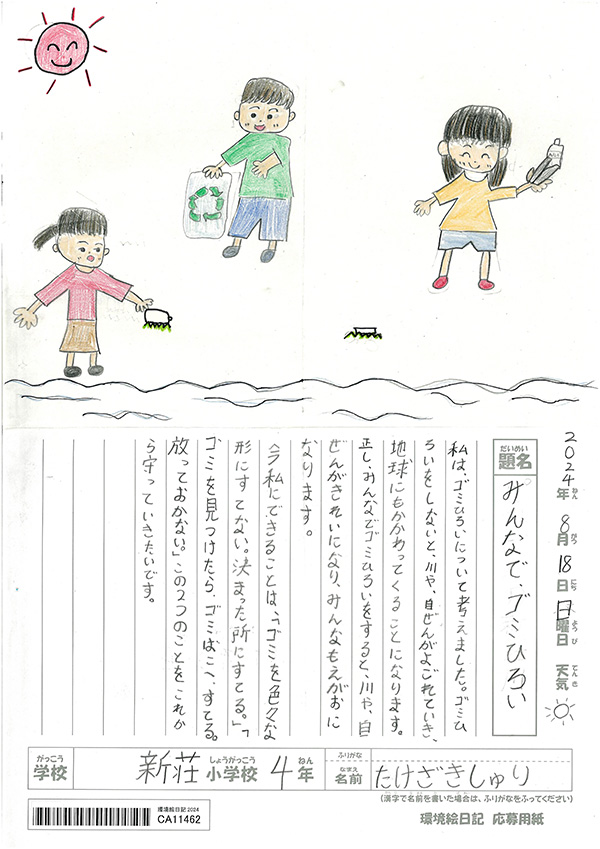 2024年ねん8月がつ18日にち日曜日ようび 天気てんき
題名だいめい みんなで、ゴミひろい
私は、ゴミひろいについて考えました。ゴミひ
ろいをしないと、川や、自ぜんがよごれていき、
地球にもかかわってくることになります。
正し、みんなでゴミひろいをすると、川や、自
ぜんがきれいになり、みんなもえがおに
なります。
今私にできることは、「ゴミを色々な
形にすてない。決まった所にすてる。」「
ゴミを見つけたら、ゴミばこへ、すてる。
放っておかない。」この2つのことをこれか
ら守っていきたいです。
学校がっこう 新荘小学校しょうがっこう 4年ねん
ふりがな
名前なまえ たけざきしゅり
(漢字で名前を書いた場合は、ふりがなをふってください)
環境絵日記2024
CA11462
環境絵日記 応募用紙